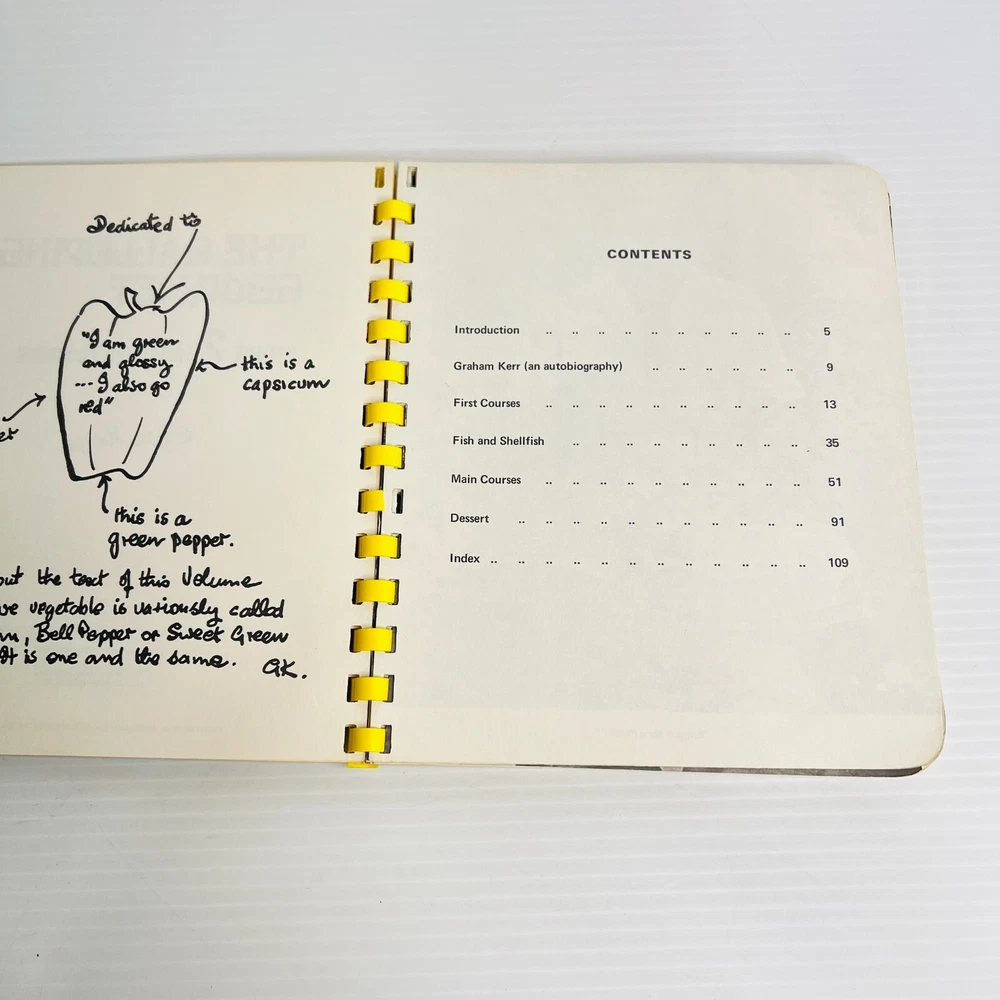 Dedicated to
"I am green
and glossy
--- I also go
red"
this is a
capsicum
this is a
green pepper.
the text of this Volume
vegetable is variously called
, Bell Pepper or Sweet Green
It is one and the same. GK.
CONTENTS
Introduction .. .. .. .. .. .. .. .. .. .. 5
Graham Kerr (an autobiography) .. .. .. .. .. .. 9
First Courses .. .. .. .. .. .. .. .. .. .. 13
Fish and Shellfish .. .. .. .. .. .. .. .. .. 35
Main Courses .. .. .. .. .. .. .. .. .. .. 51
Dessert .. .. .. .. .. .. .. .. .. .. .. 91
Index .. .. .. .. .. .. .. .. .. .. .. .. 109